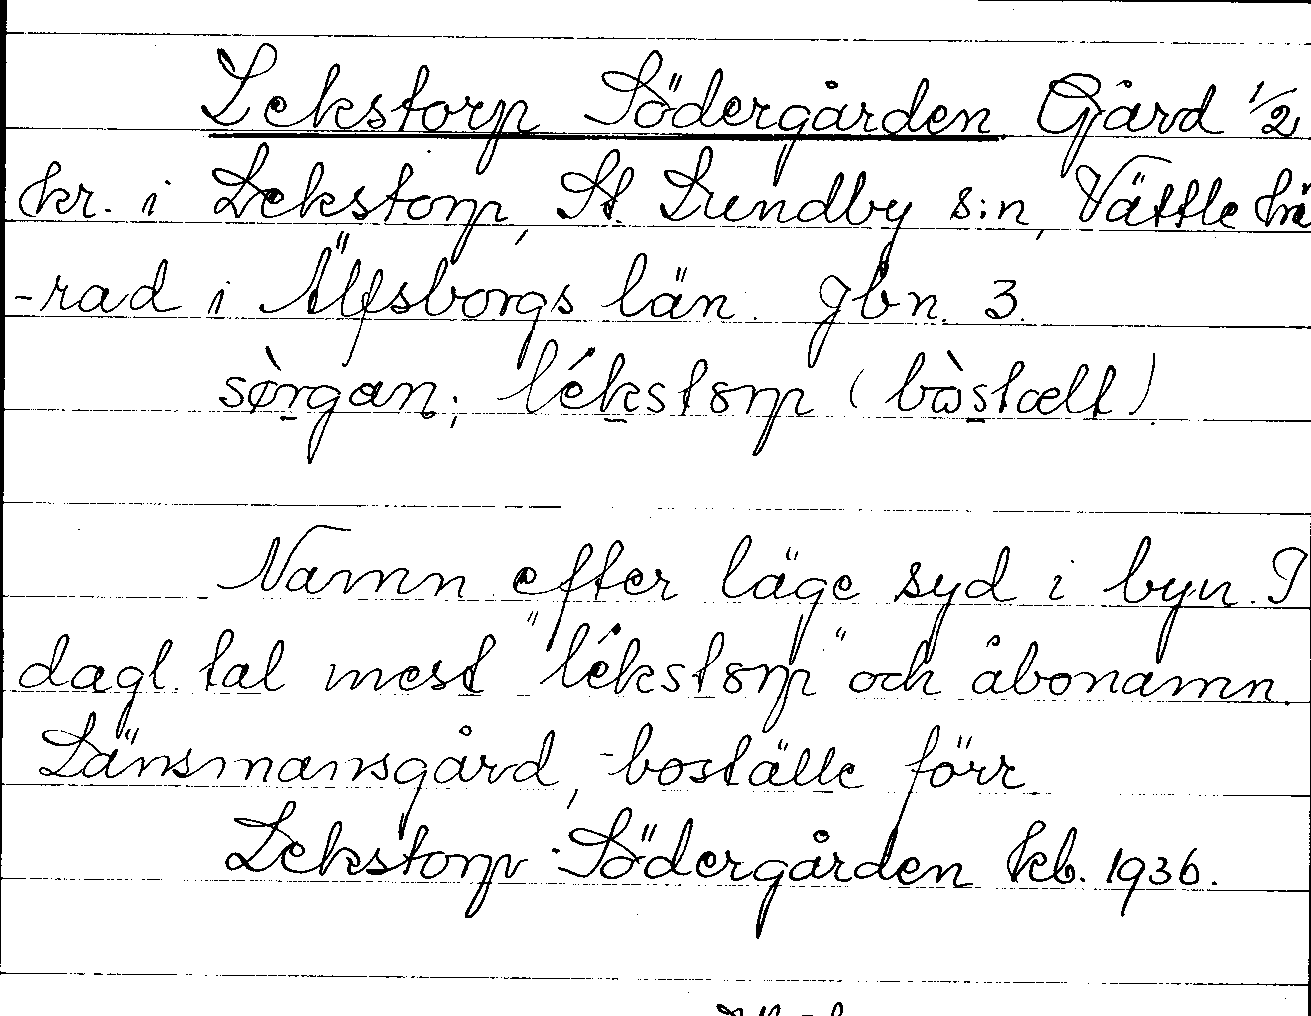 Lekstorp Södergården Gård 1/2
kr. i Lekstorp, St. Lundby s:n, Vättle hä
-rad i Älfsborgs län. Jbn. 3.
sø̀rgan; lékstorp (bòstælt)
Namn efter läge syd i byn. I
dagl. tal mest "lékstorp" och åbonamn.
Länsmansgård, -boställe förr.
Lekstorp Södergården kb. 1936.